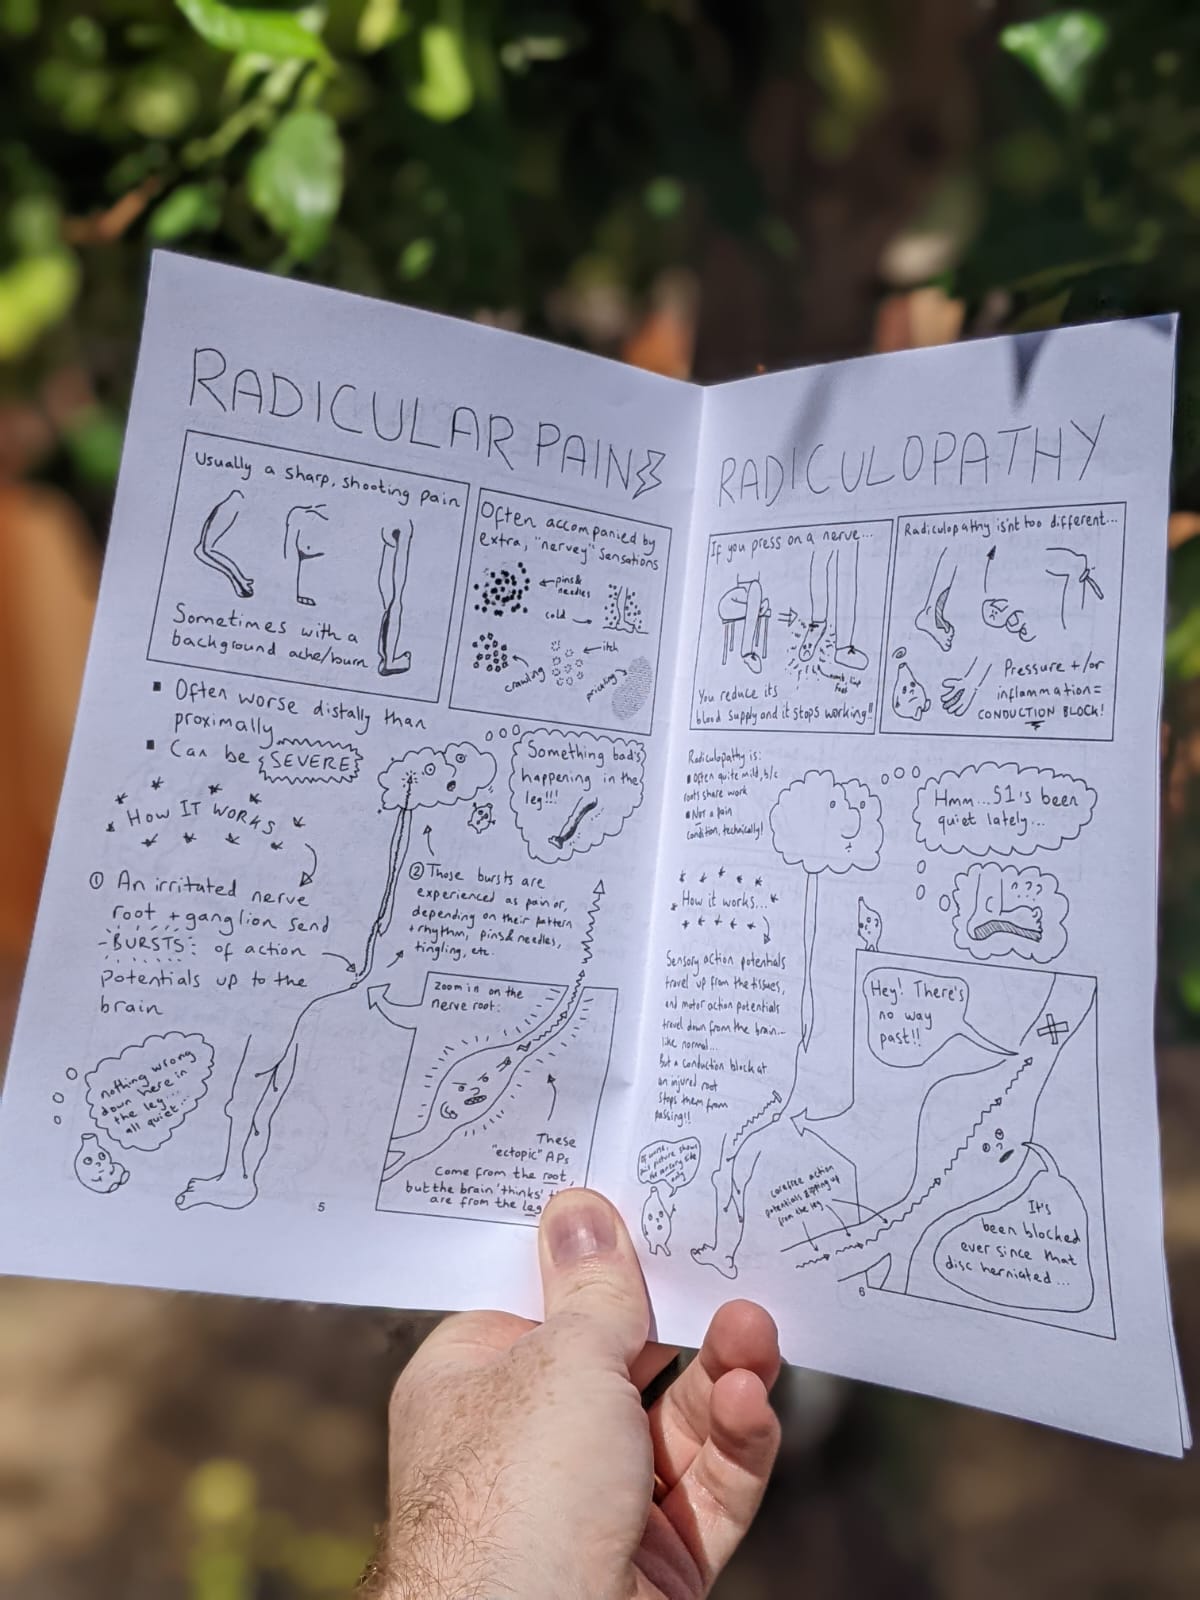 RADICULAR PAIN
Usually a sharp, shooting pain
Sometimes with a
background ache/burn
Often accompanied by
extra, "nervey" sensations
pins &
needles
cold
itch
crawling
pricking
Often worse distally than
proximally
Can be SEVERE
HOW IT WORKS
① An irritated nerve
root + ganglion send
BURSTS of action
potentials up to the
brain
Something bad's
happening in the
leg!!!
② Those bursts are
experienced as pain or,
depending on their pattern
+ rhythm, pins & needles,
tingling, etc.
zoom in on the
nerve root:
These
"ectopic" APs
come from the root,
but the brain 'thinks'
are from the leg
nothing wrong
down here in
the leg...
all quiet...
5
RADICULOPATHY
If you press on a nerve...
numb, limp
foot
You reduce its
blood supply and it stops working!!
Radiculopathy isn't too different...
Pressure +/or
inflammation =
CONDUCTION BLOCK!
Radiculopathy is:
Often quite mild, b/c
roots share work
Not a pain
condition, technically!
Hmm... S1's been
quiet lately...
???
How it works...
Sensory action potentials
travel up from the tissues,
and motor action potentials
travel down from the brain...
like normal...
But a conduction block at
an injured root
stops them from
passing!!
Hey! There's
no way
past!!
Of course,
this picture shows
the sensory side
only
carefree action
potentials zipping up
from the leg
It's
been blocked
ever since that
disc herniated...
6